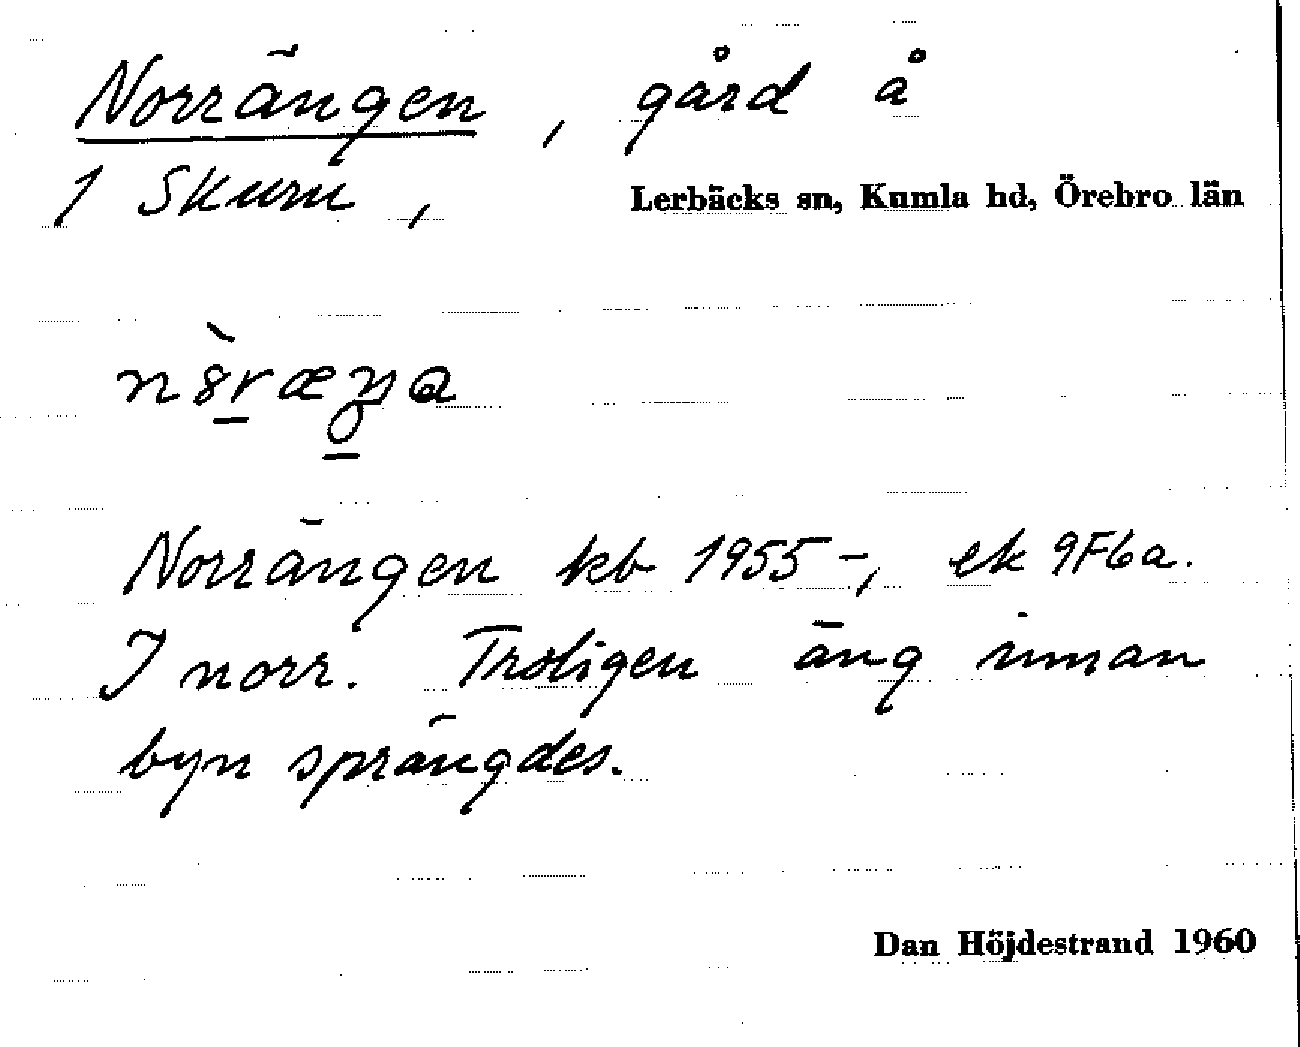 Norrängen, gård å
1 Skum, Lerbäcks sn, Kumla hd, Örebro län
Norrängen kb 1955-, ek 9F6a.
I norr. Troligen äng innan
byn sprängdes.
Dan Höjdestrand 1960